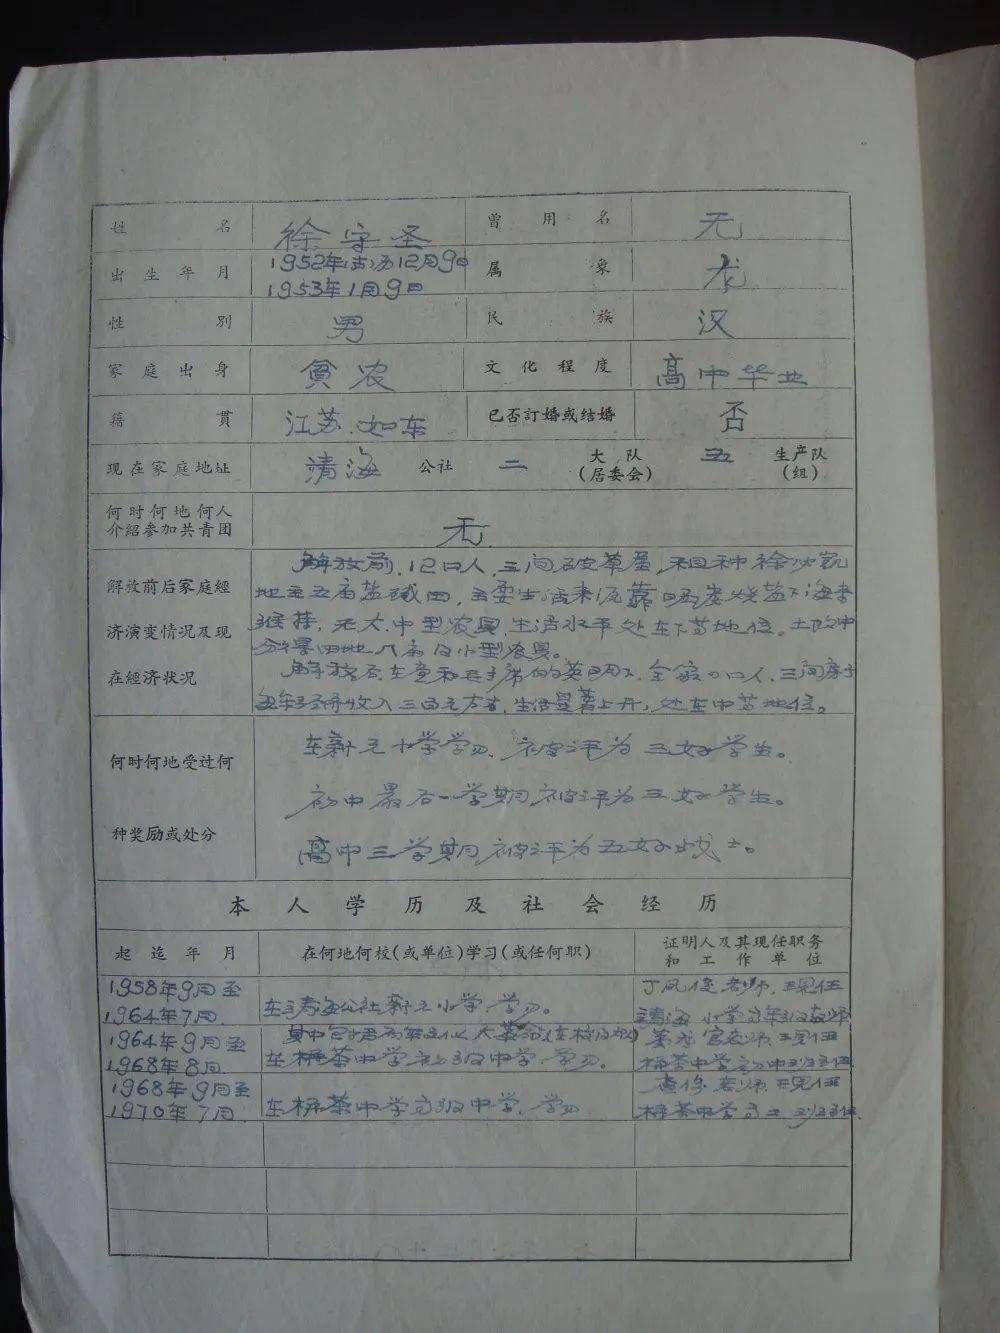 姓名 徐守圣 曾用名 无
出生年月 1952年(古)历12月9日 属象 龙
1953年1月9日
性别 男 民族 汉
家庭出身 貧农 文化程度 高中毕业
籍貫 江苏.如东 已否訂婚或结婚 否
现在家庭地址 靖海 公社 二 大队(居委会) 五 生产队(组)
何时何地何人
介紹参加共青团 无
解放前后家庭經
济演变情况及现
在經济状况
解放前,12口人,三间破草屋,租种徐
地主五亩盐碱田,主要生活来源靠烧盐下海来
维持,无大、中型农具,生活水平处在下等地位。土改中
分得田地八亩及小型农具。
解放后,在党和毛主席的英明下,全家 口人,三间房子
每年经济收入三百元左右,生活显著上升,处在中等地位。
何时何地受过何
种奖励或处分
在新元小学学习,被评为三好学生。
初中最后一学期被评为三好学生。
高中三学期被评为五好战士。
本人学历及社会经历
起迄年月 在何地何校(或单位)学习(或任何职) 证明人及其现任职务和工作单位
1958年9月至 丁凤俊老师,现任
1964年7月. 在靖海公社新元小学学习。 靖海小学高年级教师
1964年9月至 其中包括两年文化大革命(在校
1968年8月. 在栟茶中学初级中学学习。 栟茶中学初中班主任
1968年9月至 老师,现任
1970年7月. 在栟茶中学高级中学学习. 栟茶中学高二班主任.